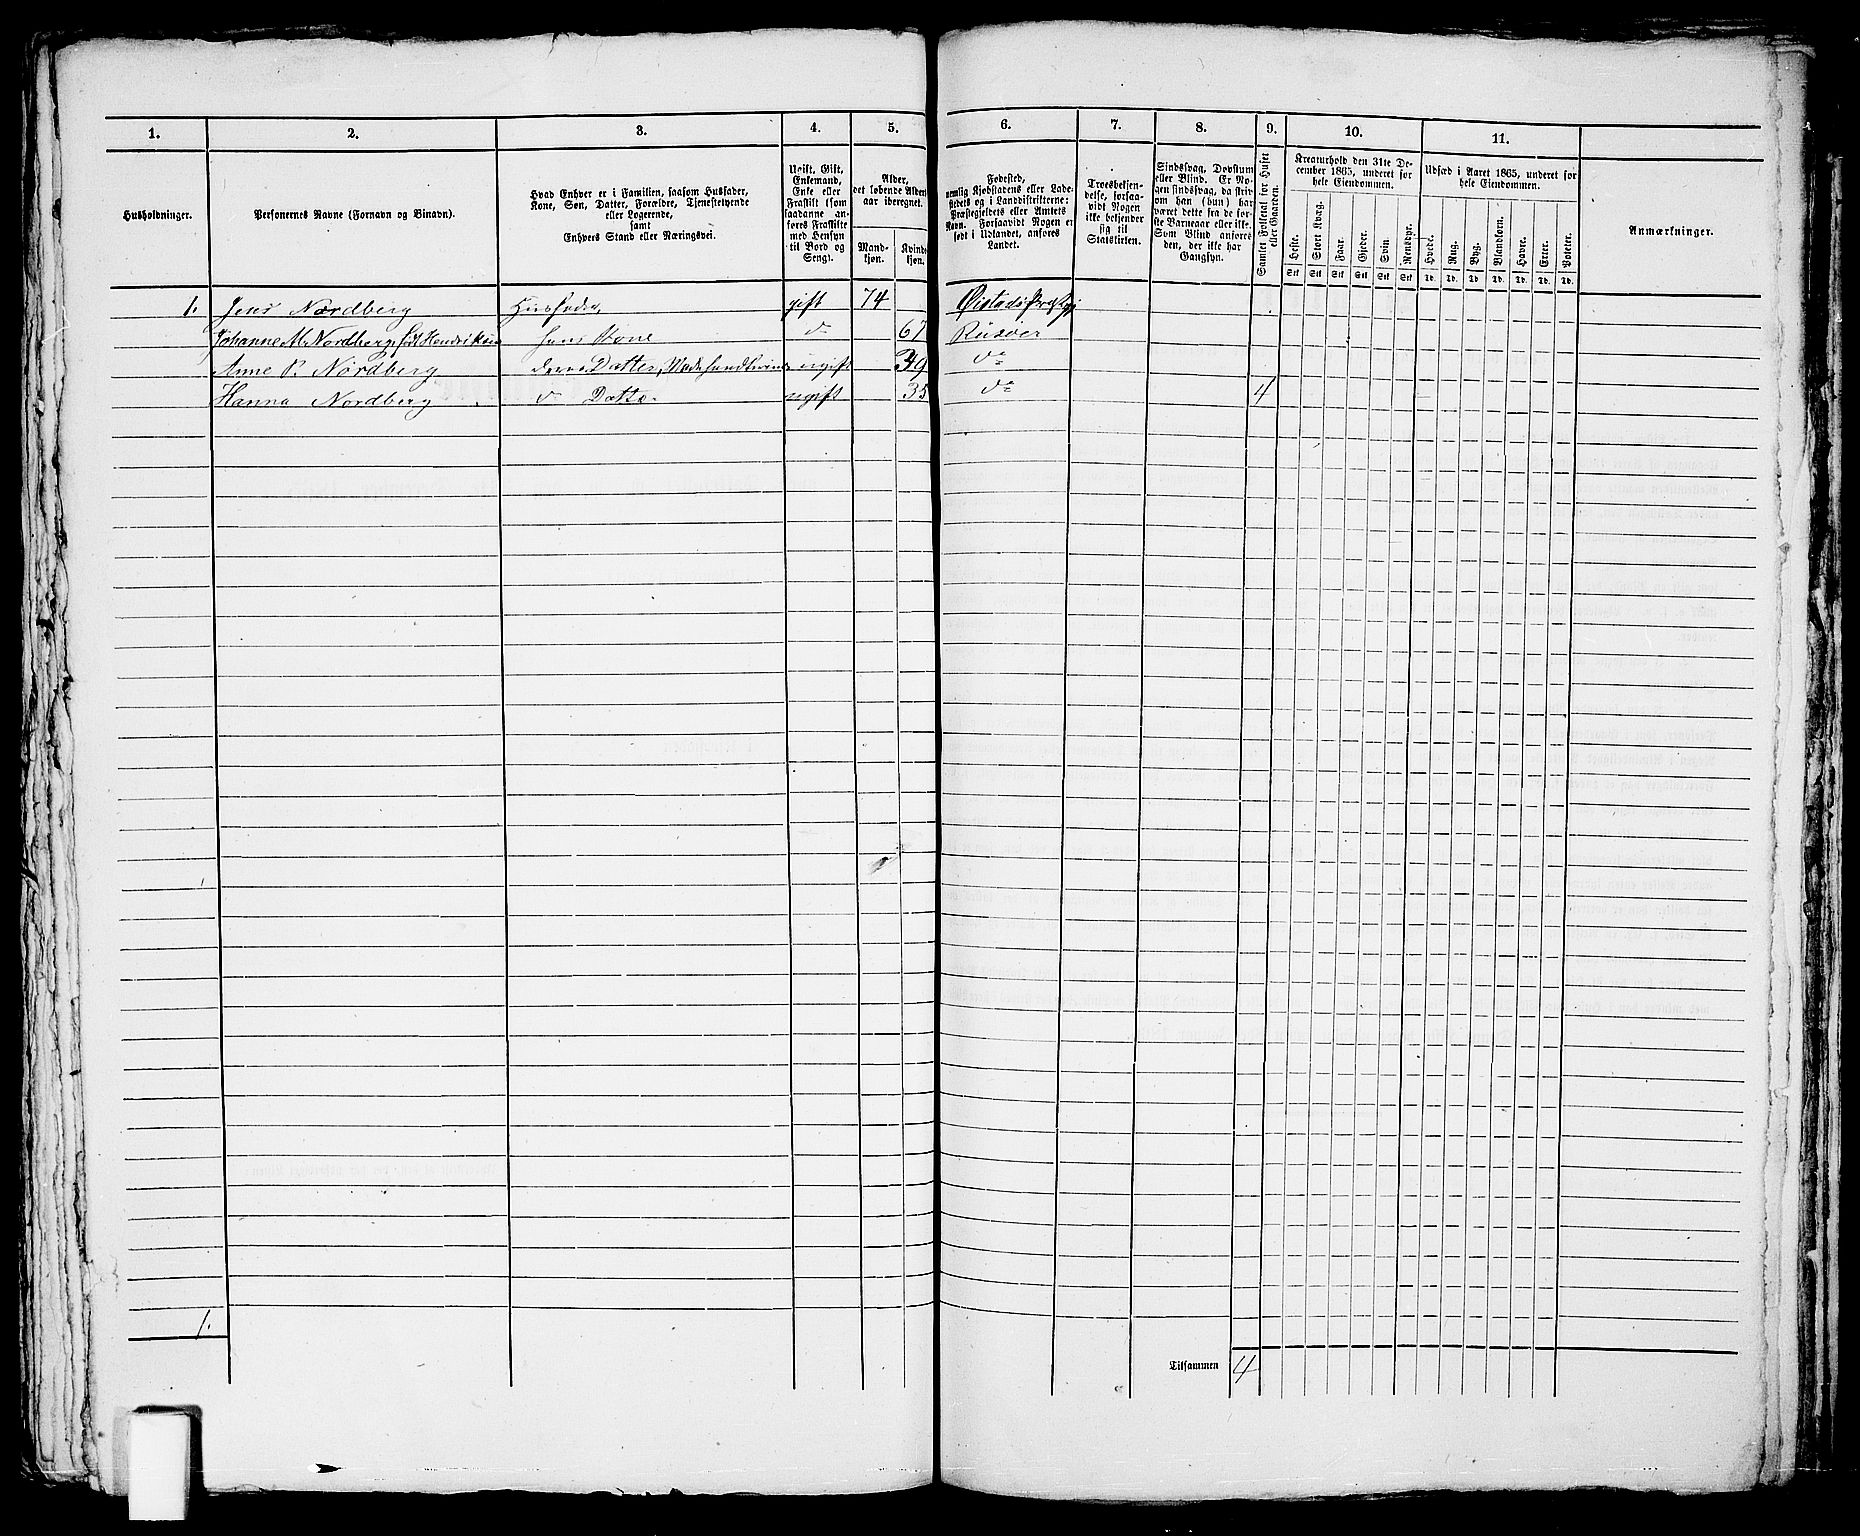 1. 2. 3. 4. 5. 6. 7. 8. 9. 10. 11.
Husholdninger.
Personernes Navne (Fornavn og Binavn).
Hvad Enhver er i Familien, saasom Husfader,
Kone, Søn, Datter, Forældre, Tjenestetyende
eller Logerende,
samt
Enhvers Stand eller Næringsvei.
Ugift, Gift,
Enkemand,
Enke eller
Fraskilt (som
saadanne an-
føres Fraskilte
med Hensyn
til Bord og
Seng).
Alder,
det løbende Alders-
aar iberegnet.
Mand-
kjøn.
Kvinde-
kjøn.
Fødested,
nemlig Kjøbstadens eller Lade-
stedets og i Landdistrikterne:
Præstegjeldets eller Amtets
Navn. Forsaavidt Nogen er
født i Udlandet, anføres
Landet.
Troesbekjen-
delse, forsaa-
vidt Nogen
ikke bekjender
sig til
Statskirken.
Sindssvag, Døvstum
eller Blind. Er No-
gen sindssvag, da skri-
ves om han (hun) har
været dette fra de før-
ste Barneaar eller ikke.
Som Blind anføres
den, der ikke har
Gangsyn.
Samlet Folketal for Huset
eller Gaarden.
Kreaturhold den 31te De-
cember 1865, underet for
hele Eiendommen.
Heste. Stort Kvæg. Faar. Gjeder. Svin. Rensdyr.
Stk Stk Stk Stk Stk Stk
Udsæd i Aaret 1865, underet for
hele Eiendommen.
Hvede. Rug. Byg. Blandkorn. Havre. Erter. Poteter.
Td. Td. Td. Td. Td. Td. Td.
Anmærkninger.
1. Jens Nordberg Husfader gift 74 Øistads Præstgj
Johanne M. Nordberg, født Hendriksen hans Kone do 67 Risøer
Anne P. Nordberg deres Datter, ugift 39 do
Hanna Nordberg do Datter ugift 35 do 4
1.
Tilsammen 4